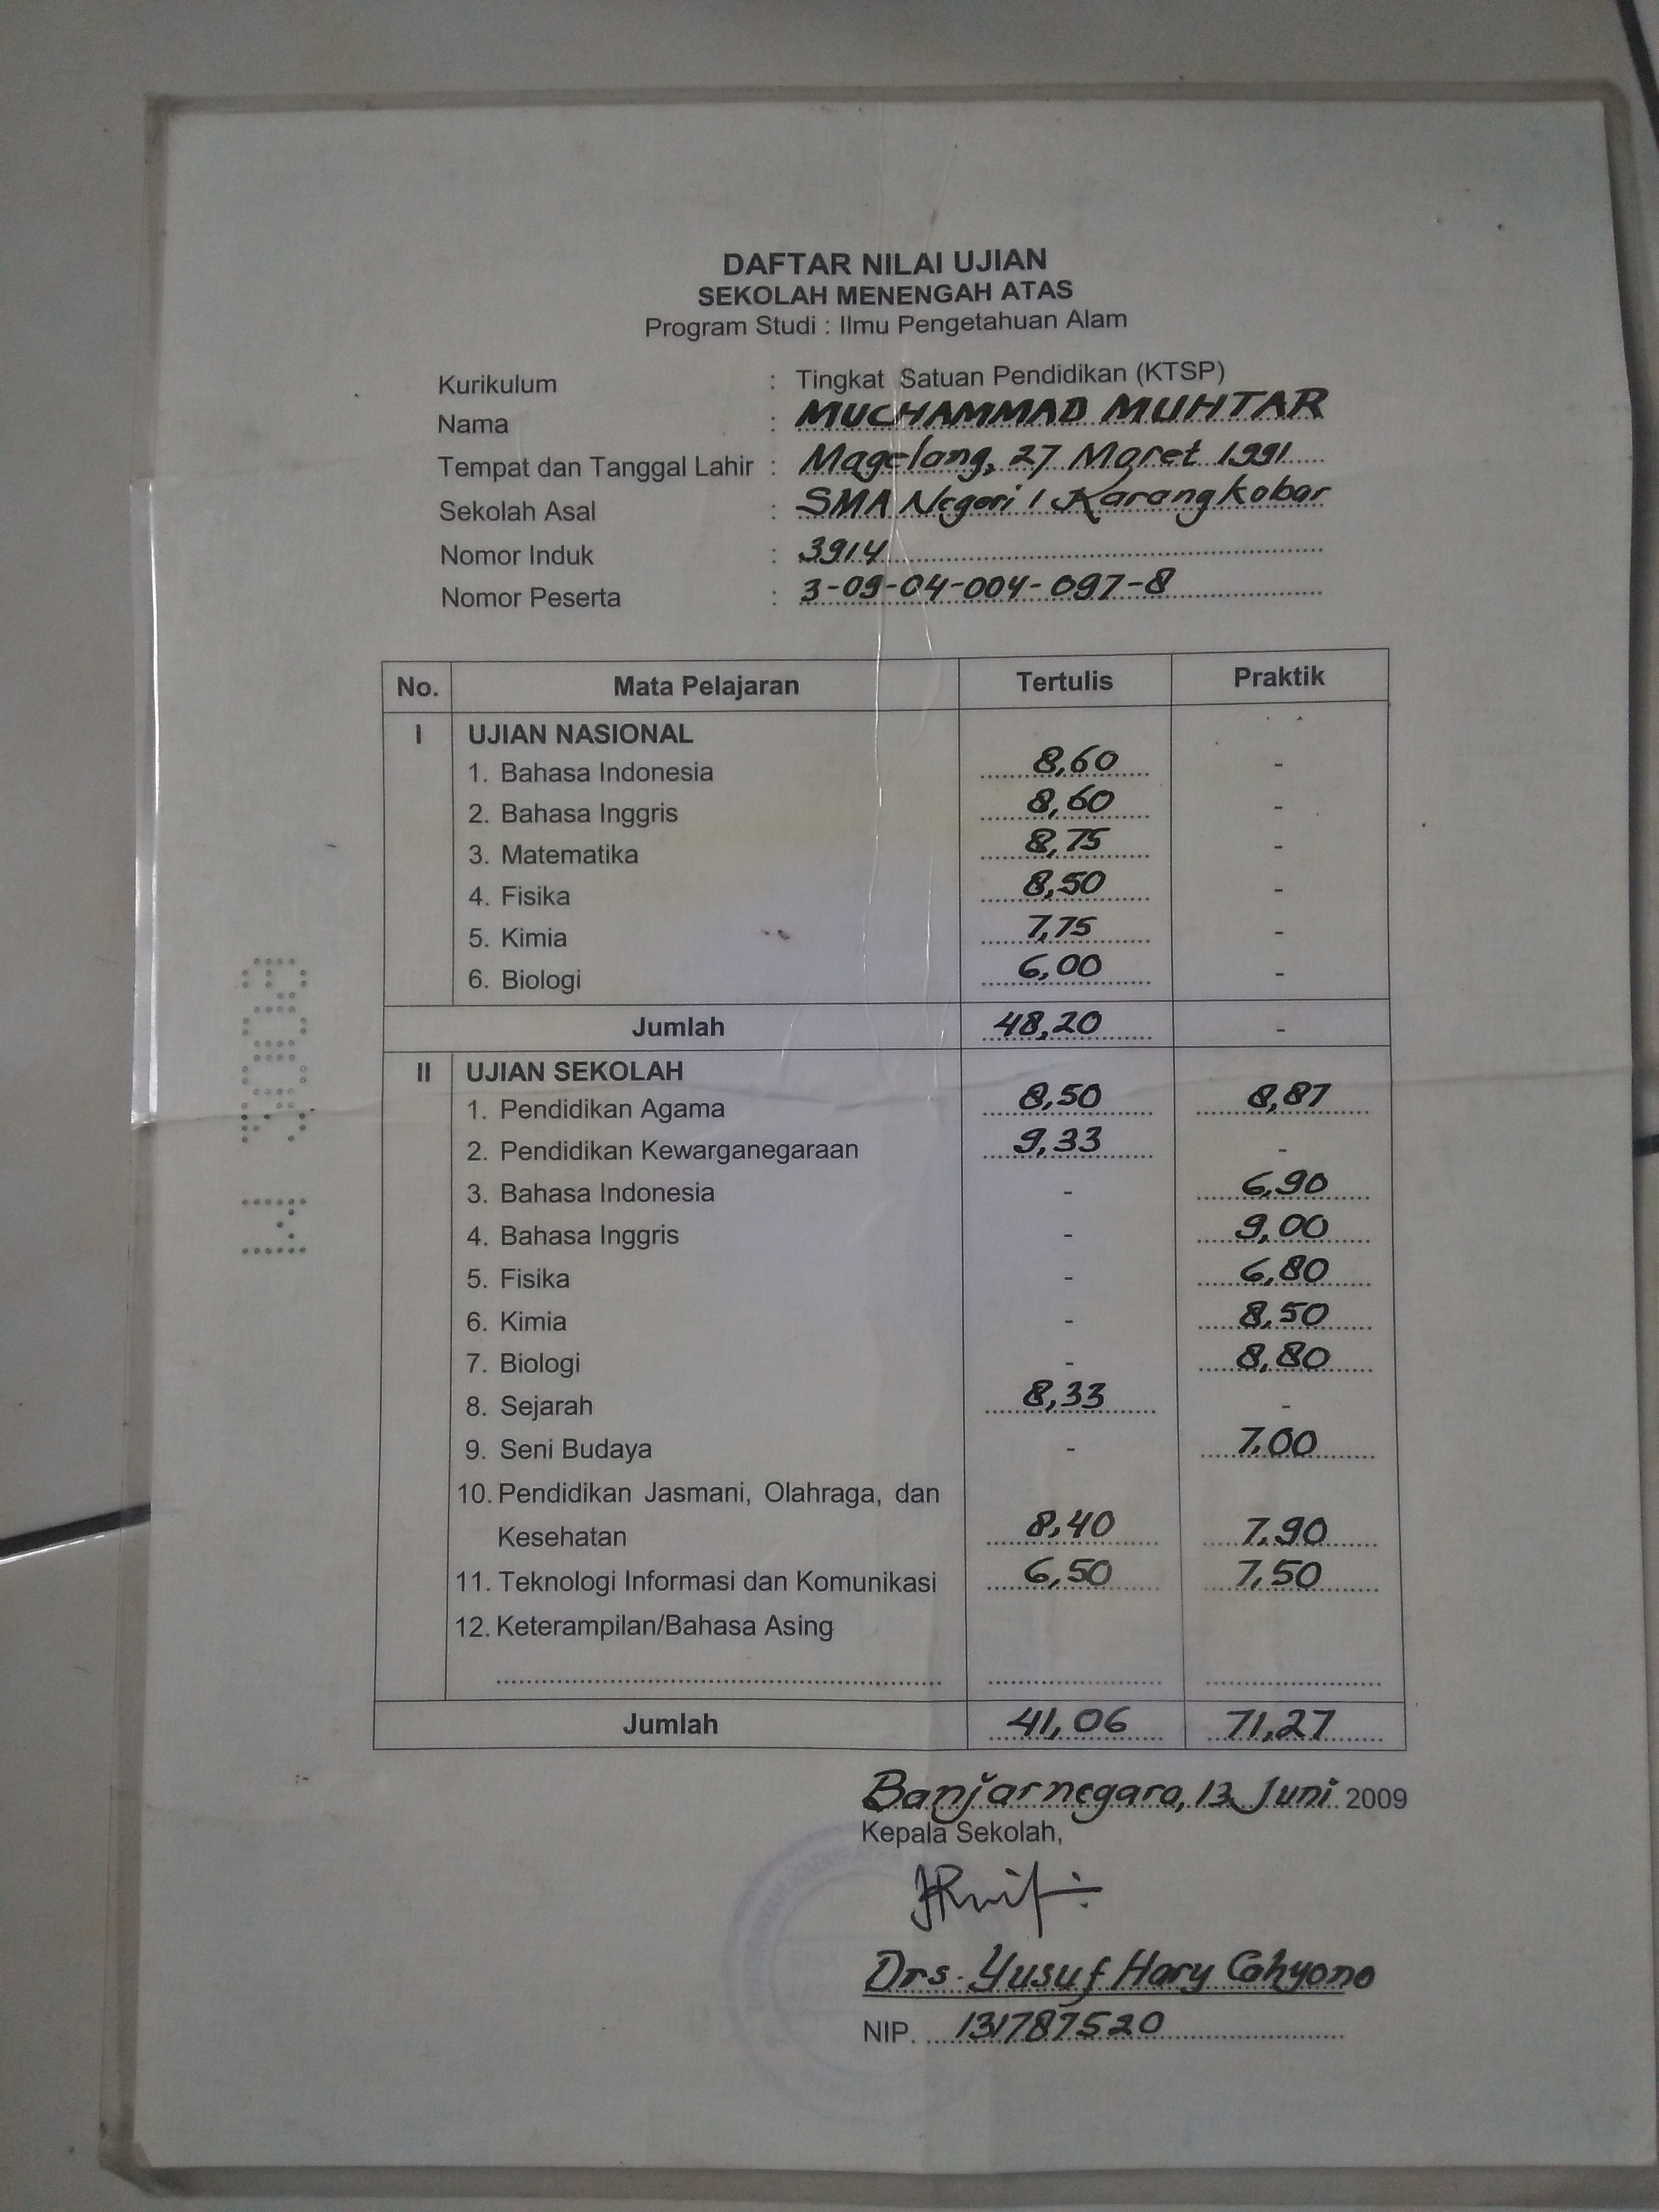 DAFTAR NILAI UJIAN
SEKOLAH MENENGAH ATAS
Program Studi : Ilmu Pengetahuan Alam
Kurikulum : Tingkat Satuan Pendidikan (KTSP)
Nama : MUCHAMMAD MUHTAR
Tempat dan Tanggal Lahir : Magelang, 27 Maret 1991
Sekolah Asal : SMA Negeri 1 Karangkobar
Nomor Induk : 3914
Nomor Peserta : 3-09-04-004-097-8
No. Mata Pelajaran Tertulis Praktik
I UJIAN NASIONAL
1. Bahasa Indonesia 8,60 -
2. Bahasa Inggris 8,60 -
3. Matematika 8,75 -
4. Fisika 8,50 -
5. Kimia 7,75 -
6. Biologi 6,00 -
Jumlah 48,20 -
II UJIAN SEKOLAH
1. Pendidikan Agama 8,50 8,87
2. Pendidikan Kewarganegaraan 9,33 -
3. Bahasa Indonesia - 6,90
4. Bahasa Inggris - 9,00
5. Fisika - 6,80
6. Kimia - 8,50
7. Biologi - 8,80
8. Sejarah 8,33 -
9. Seni Budaya - 7,00
10. Pendidikan Jasmani, Olahraga, dan
Kesehatan 8,40 7,90
11. Teknologi Informasi dan Komunikasi 6,50 7,50
12. Keterampilan/Bahasa Asing
Jumlah 41,06 71,27
Banjarnegara, 13 Juni 2009
Kepala Sekolah,
Drs. Yusuf Hary Cahyono
NIP. 131787520